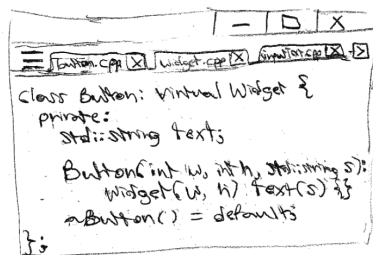 X
button.cpp X widget.cpp X X
class Button: virtual Widget {
private:
std::string text;
Button(int w, int h, std::string s):
Widget(w, h) text(s) {}
~Button() = default;
};